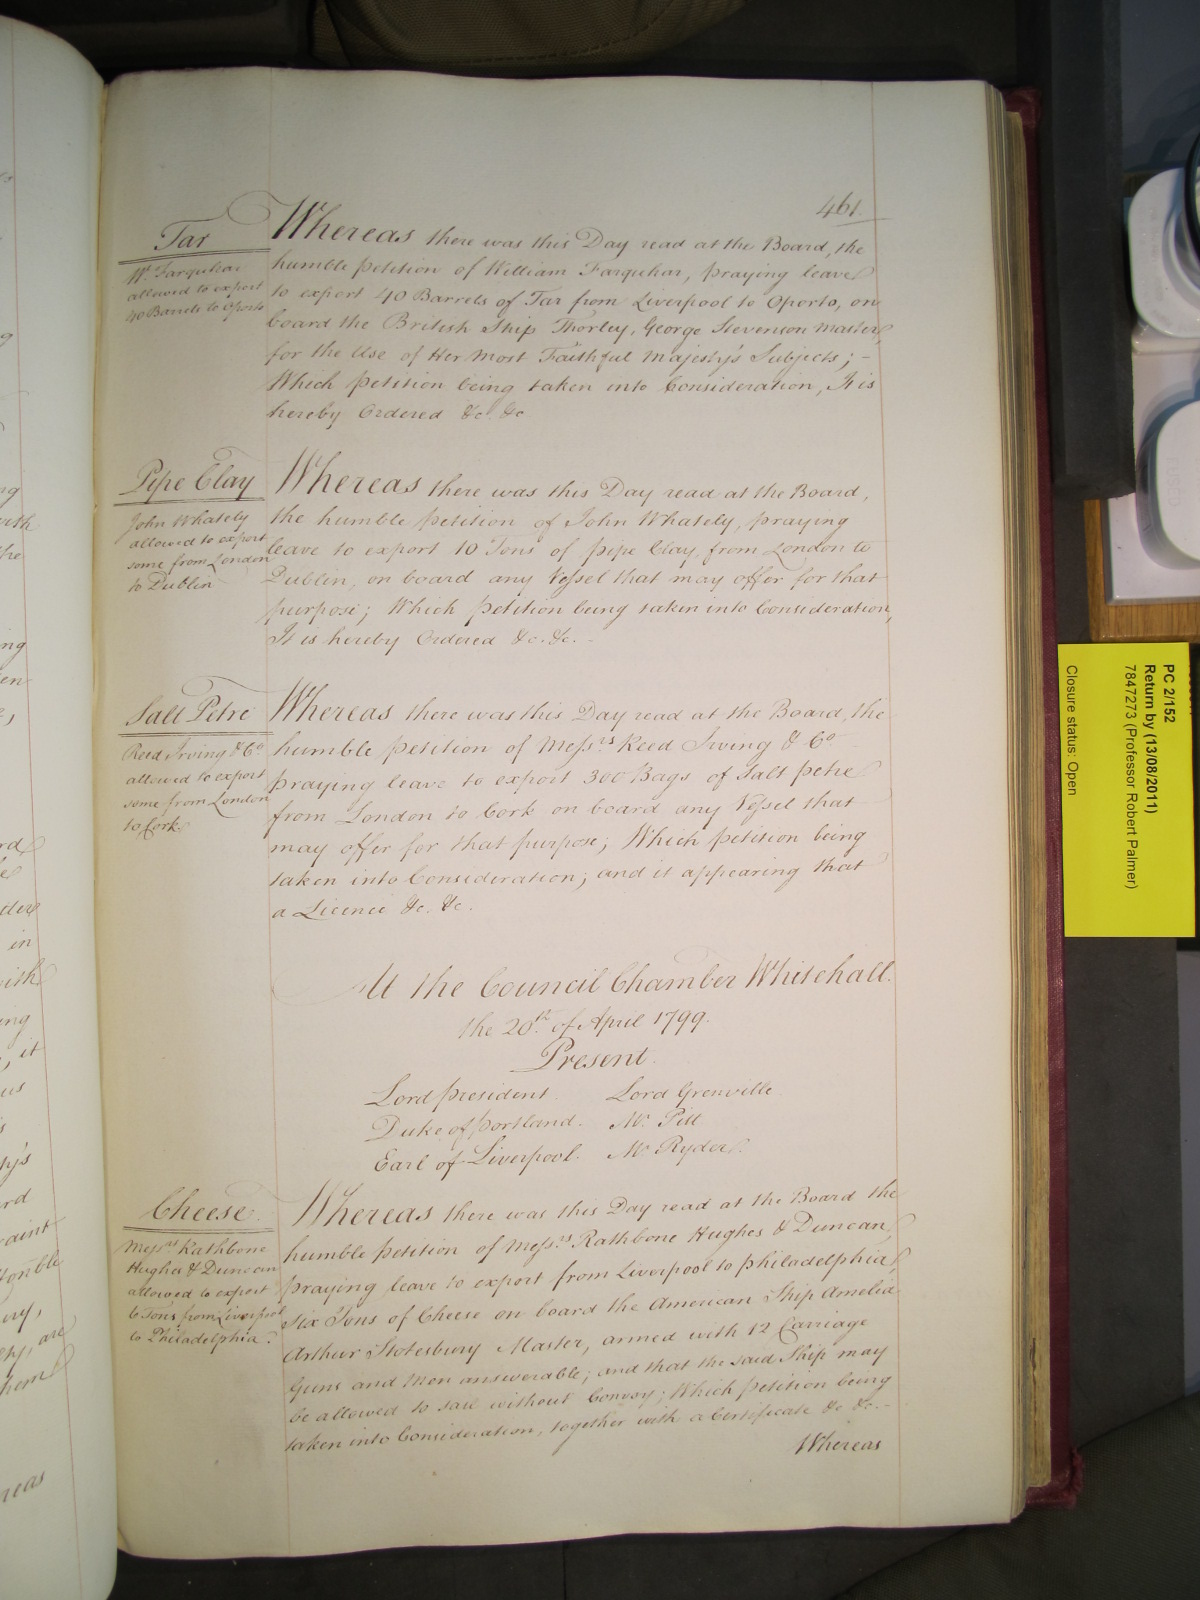 461.
Tar
Wm. Farquhar
allowed to export
40 Barrels to Oporto
Whereas there was this Day read at the Board, the
humble petition of William Farquhar, praying leave
to export 40 Barrels of Tar from Liverpool to Oporto, on
board the British Ship Thorley, George Stevenson Master,
for the Use of Her Most Faithful Majesty's Subjects; -
Which petition being taken into Consideration, It is
hereby Ordered &c. &c
Pipe Clay
John Whately
allowed to export
some from London
to Dublin
Whereas there was this Day read at the Board,
the humble petition of John Whately, praying
leave to export 10 Tons of pipe Clay, from London to
Dublin, on board any Vessel that may offer for that
purpose; Which petition being taken into Consideration,
It is hereby Ordered &c. &c. -
Salt Petre
Reed Irving & Co.
allowed to export
some from London
to Cork.
Whereas there was this Day read at the Board, the
humble petition of Messrs Reed Irving & Co
praying leave to export 300 Bags of Salt petre
from London to Cork on board any Vessel that
may offer for that purpose; Which petition being
taken into Consideration; and it appearing that
a Licence &c. &c.
At the Council Chamber Whitehall.
the 20th. of April 1799.
Present.
Lord president. Lord Grenville
Duke of portland. Mr. Pitt
Earl of Liverpool. Mr Ryder.
Cheese.
Messrs Rathbone
Hughes & Duncan
allowed to export
6 Tons from Liverpool
to Philadelphia.
Whereas there was this Day read at the Board the
humble petition of Messrs. Rathbone Hughes & Duncan,
praying leave to export from Liverpool to philadelphia,
six Tons of Cheese on board the American Ship Amelia
Arthur Stotesbury Master, armed with 12 Carriage
Guns and Men answerable; and that the said Ship may
be allowed to sail without Convoy; Which petition being
taken into Consideration, together with a Certificate &c &c. -
Whereas
PC 2/152
Return by (13/08/2011)
7847273 (Professor Robert Palmer)
Closure status: Open